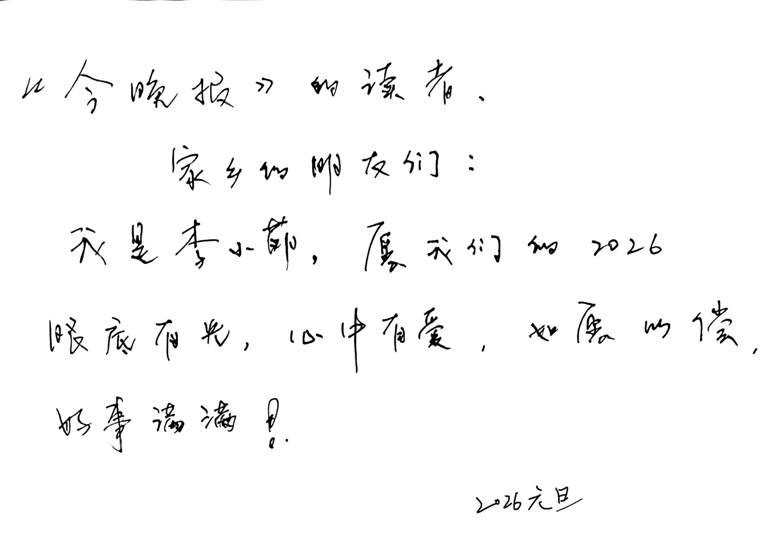 《今晚报》的读者、
家乡的朋友们：
我是李小萌，愿我们的2026
眼底有光，心中有爱，如愿以偿，
好事满满！
2026元旦